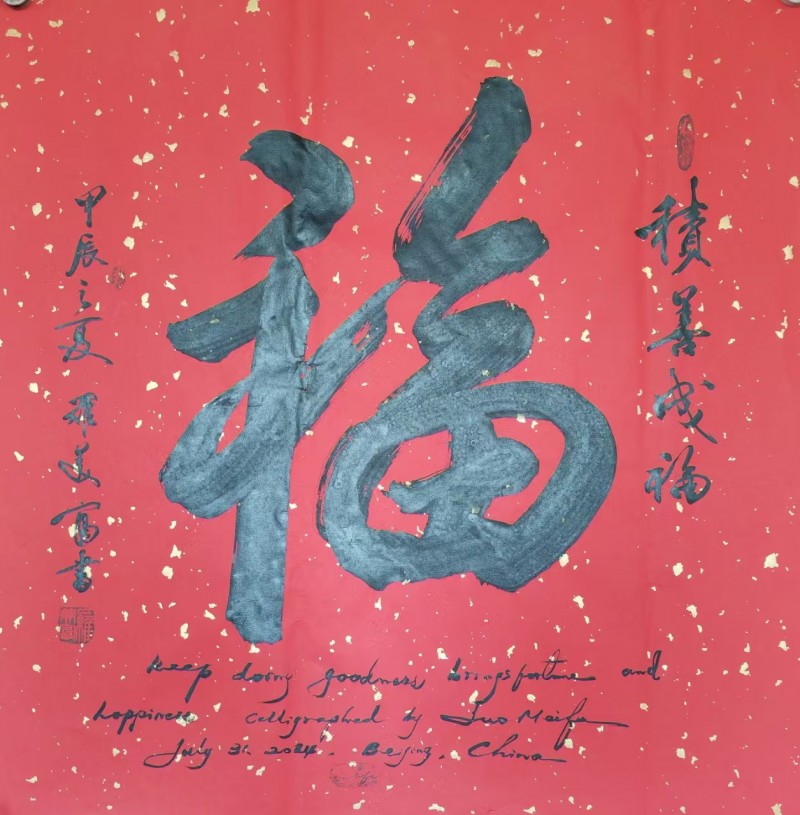 積善成福
福
甲辰之夏 羅美富書
Keep doing goodness brings fortune and
happiness calligraphed by Luo Meifu
July 31. 2024. Beijing, China